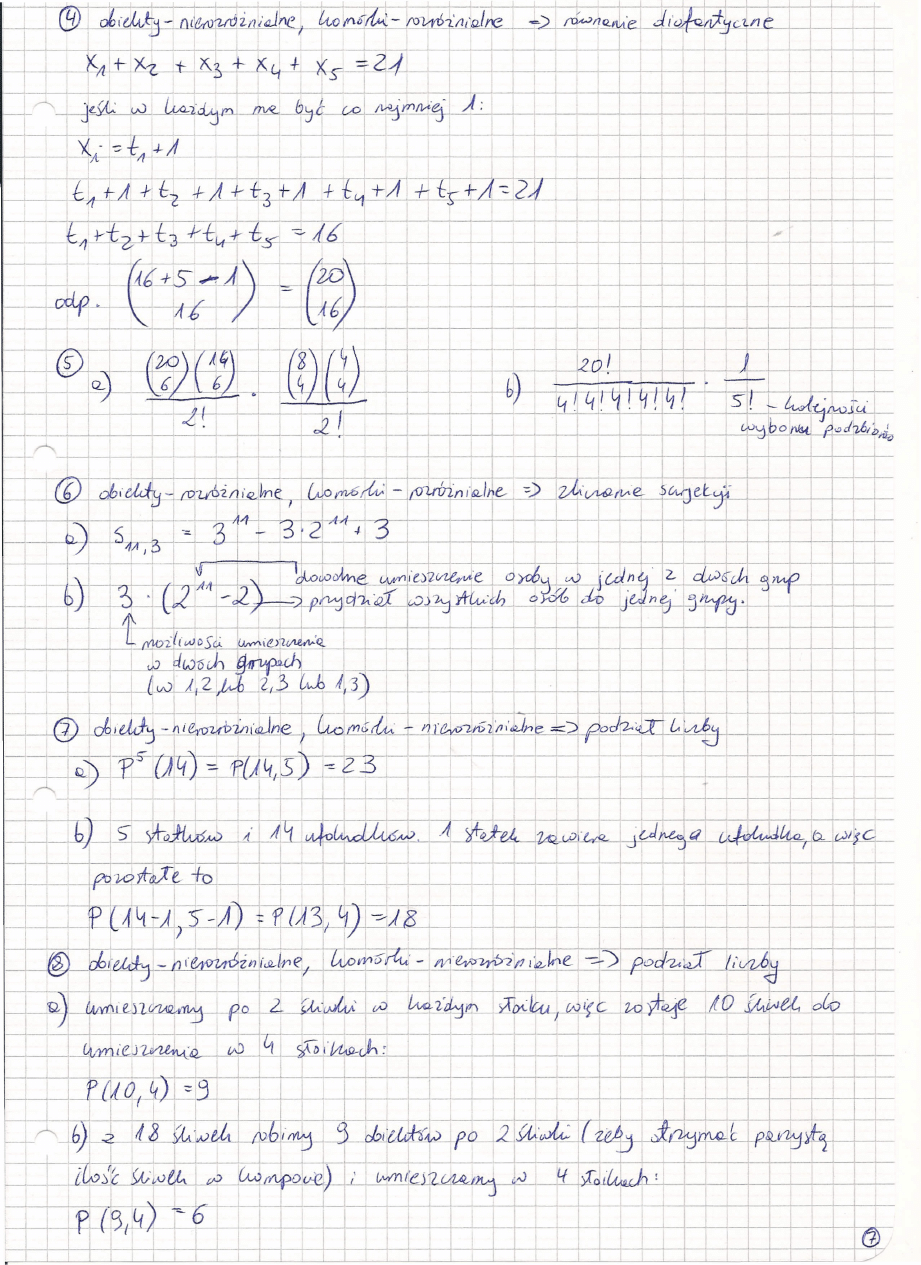 ④ obiekty-nierozróżnialne, komórki-rozróżnialne => równanie diofantyczne
x₁ + x₂ + x₃ + x₄ + x₅ = 21
jeśli w każdym ma być co najmniej 1:
xᵢ = t₁ + 1
t₁ + 1 + t₂ + 1 + t₃ + 1 + t₄ + 1 + t₅ + 1 = 21
t₁ + t₂ + t₃ + t₄ + t₅ = 16
odp. (16 + 5 - 1 \\ 16) = (20 \\ 16)
⑤ a) (20 \\ 6)(14 \\ 6) / 2! · (8 \\ 4)(4 \\ 4) / 2! b) 20! / 4!4!4!4!4! · 1 / 5! - kolejności
wyboru podzbiorów
⑥ obiekty-rozróżnialne, komórki-rozróżnialne => zliczanie surjekcji
a) S₁₁,₃ = 3¹¹ - 3·2¹¹ + 3
dowolne umieszczenie osoby w jednej z dwóch grup
b) 3 · (2¹¹ - 2) → przydział wszystkich osób do jednej grupy.
możliwości umieszczenia
w dwóch grupach
(w 1,2 lub 2,3 lub 1,3)
⑦ obiekty-nierozróżnialne, komórki-nierozróżnialne => podział liczby
a) P⁵(14) = P(14,5) = 23
b) 5 statków i 14 ufoludków. 1 statek zawiera jednego ufoludka, a więc
pozostałe to
P(14-1, 5-1) = P(13, 4) = 18
⑧ obiekty-nierozróżnialne, komórki-nierozróżnialne => podział liczby
a) umieszczamy po 2 śliwki w każdym słoiku, więc zostaje 10 śliwek do
umieszczenia w 4 słoikach:
P(10,4) = 9
b) z 18 śliwek robimy 9 obiektów po 2 śliwki (żeby otrzymać parzystą
ilość śliwek w kompocie) i umieszczamy w 4 słoikach:
P(9,4) = 6
⑦